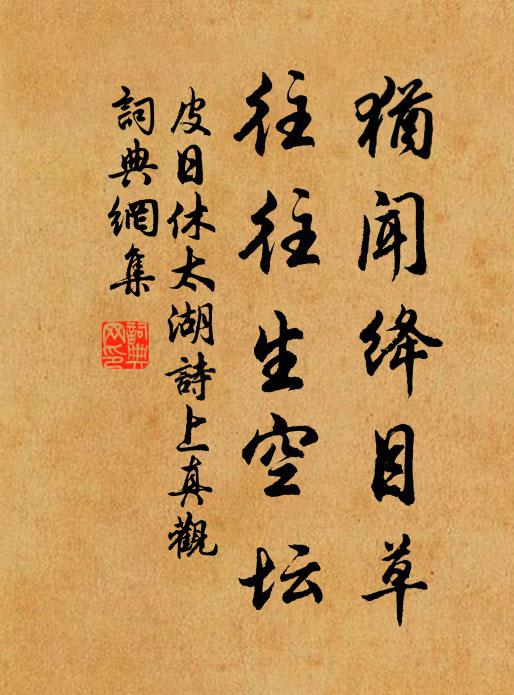 猶闻絳目草
往往生空坛
皮日休太湖詩上真觀
詞典網集
詞典
网印